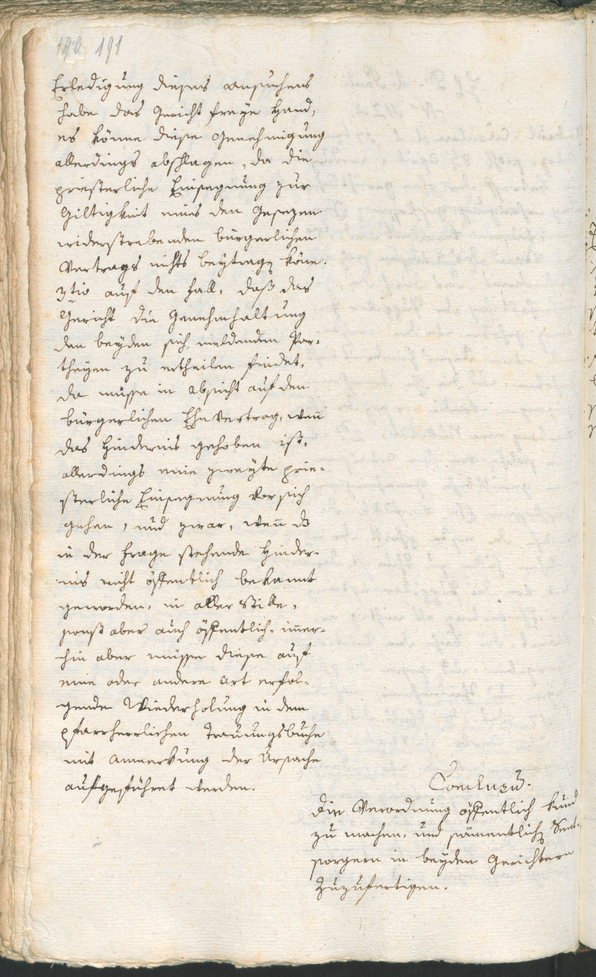 190 191
Erledigung dieses Ansuchens
habe das Gericht freÿe Hand,
es könne diese Genehmigung
allerdings abschlagen, da die
priesterliche Einsegnung zur
Giltigkeit eines den Gesezen
widerstrebenden bürgerlichen
Vertrags nichts beÿtragen könne.
3tio auf den Fall, daß das
Gericht die Genehmhaltung
den beÿden sich meldenden Par-
theÿen zu ertheilen findet,
da müsse in Absicht auf den
bürgerlichen Ehevertrag, wen̄
das Hinderniß gehoben ist,
allerdings eine zweÿte prie-
sterliche Einsegnung vor sich
gehen, und zwar, wen̄ das
in der Frage stehende Hinder-
niß nicht öffentlich bekannt
geworden, in aller Stille,
sonst aber auch öffentlich, im̄er-
hin aber müsse diese auf
eine oder andere Art erfol-
gende Wiederholung in dem
pfarrherrlichen Trauungsbuche
mit Anmerkung der Ursache
aufgeführet werden.
Conclusum.
Die Verordnung öffentlich kund
zu machen, und sämentlichen Seel-
sorgern in beÿden Gerichtern
zuzufertigen.